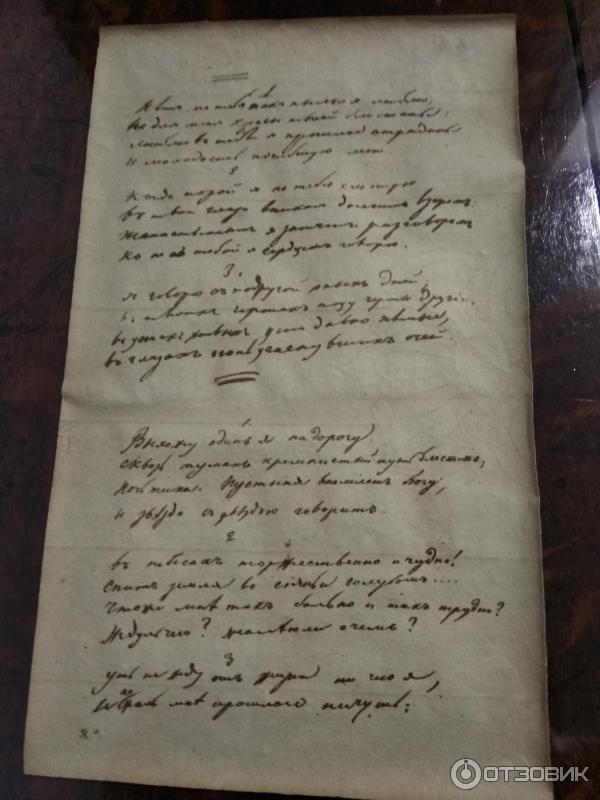 1
Нѣтъ, не тебя такъ пылко я люблю,
Не для меня красы твоей блистанье;
Люблю въ тебѣ я прошлое страданье
И молодость погибшую мою.
2
Когда порой я на тебя смотрю
Въ твои глаза вникая долгимъ взоромъ:
Таинственнымъ я занятъ разговоромъ
Но не съ тобой я сердцемъ говорю.
3.
Я говорю съ подругой юныхъ дней,
Въ твоихъ чертахъ ищу черты другія,
Въ устахъ живыхъ уста давно нѣмые,
Въ глазахъ огонь угаснувшихъ очей.
1
Выхожу одинъ я на дорогу
Сквозь туманъ кремнистый путь блеститъ;
Ночь тиха. Пустыня внемлетъ Богу,
И звѣзда съ звѣздою говоритъ.
2
Въ небесахъ торжественно и чудно!
Спитъ земля въ сіяньи голубомъ....
Что же мнѣ такъ больно и такъ трудно?
Жду ль чего? жалѣю ли о чемъ?
3
Ужъ не жду отъ жизни ничего я,
И не жаль мнѣ прошлаго ничуть;
ОТЗОВИК